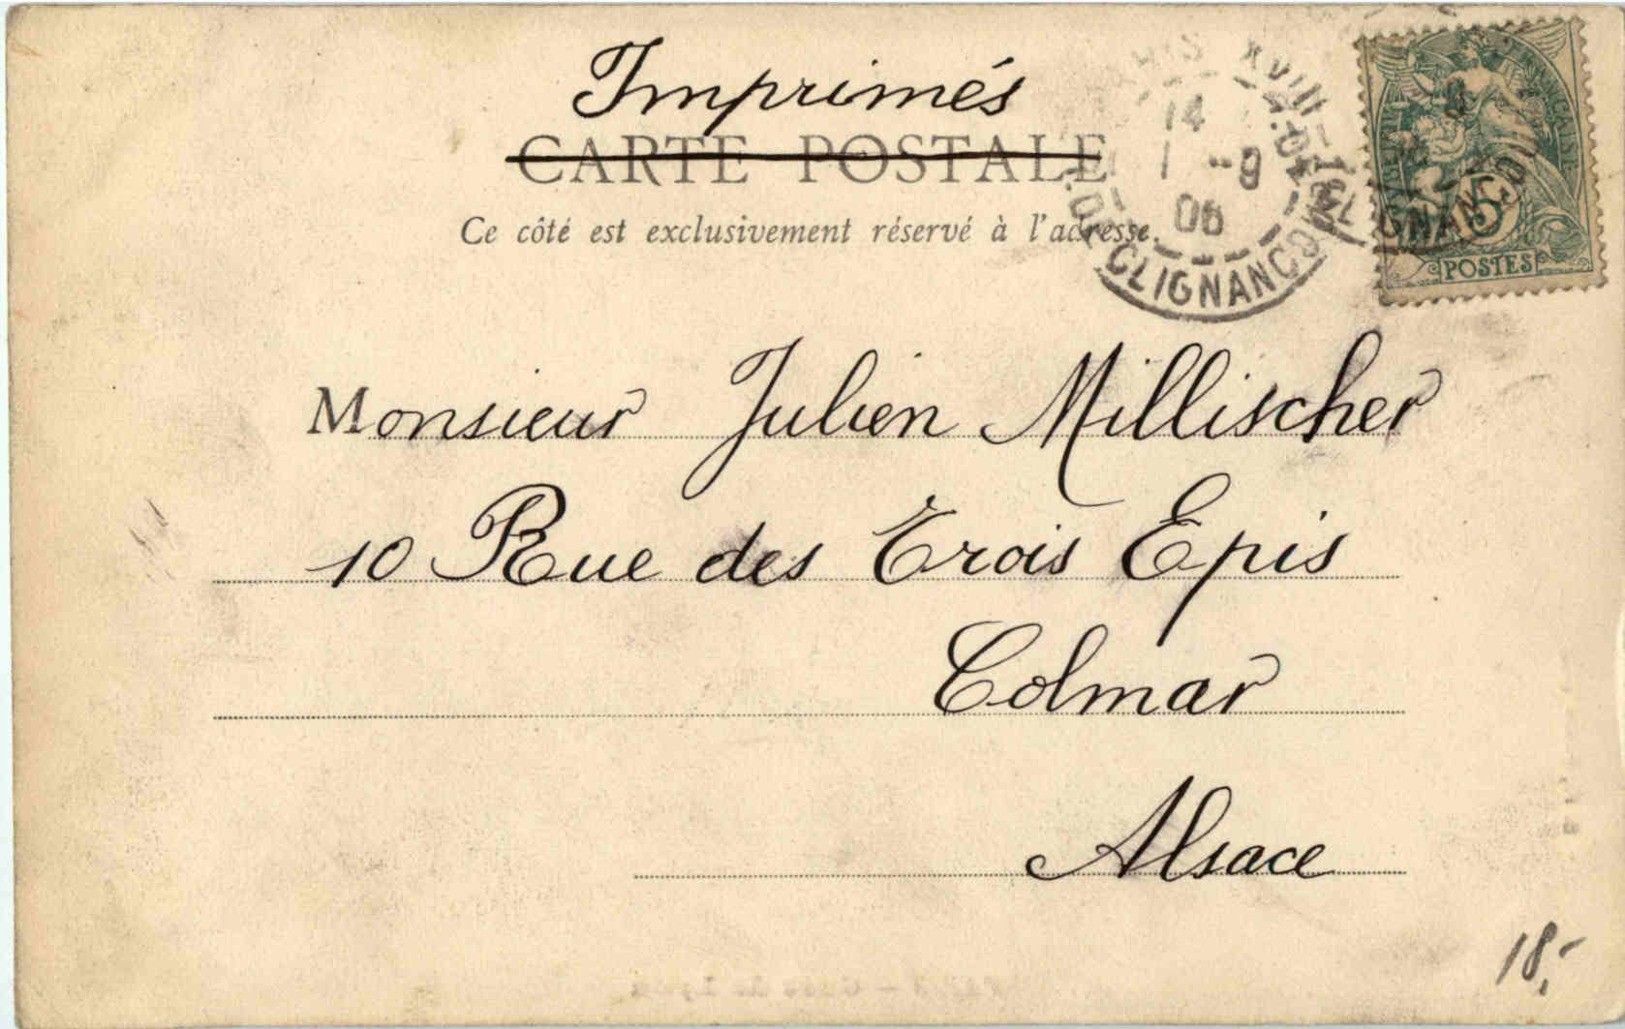 Imprimés
CARTE POSTALE
Ce côté est exclusivement réservé à l'adresse.
14
1 -9
06
CLIGNANCO
GNANCOU
5
POSTES
Monsieur Julien Millischer
10 Rue des Trois Epis
Colmar
Alsace
18,-